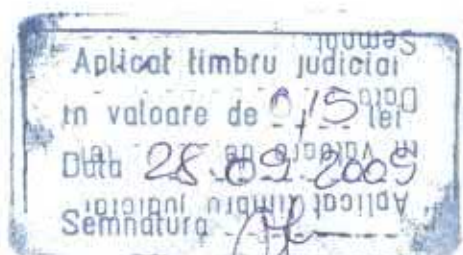 Aplicat timbru judiciar
în valoare de 0,15 lei
Data 28.09.2009
Semnătura